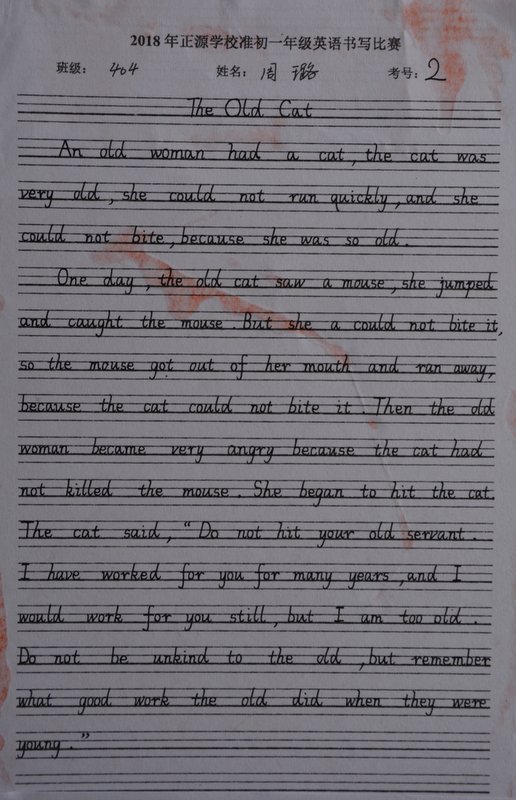 2018年正源学校准初一年级英语书写比赛
班级： 404 姓名： 周璐 考号： 2
The Old Cat
An old woman had a cat, the cat was
very old, she could not run quickly, and she
could not bite, because she was so old.
One day, the old cat saw a mouse, she jumped
and caught the mouse. But she a could not bite it,
so the mouse got out of her mouth and ran away,
because the cat could not bite it. Then the old
woman became very angry because the cat had
not killed the mouse. She began to hit the cat.
The cat said, “Do not hit your old servant.
I have worked for you for many years, and I
would work for you still, but I am too old.
Do not be unkind to the old, but remember
what good work the old did when they were
young.”